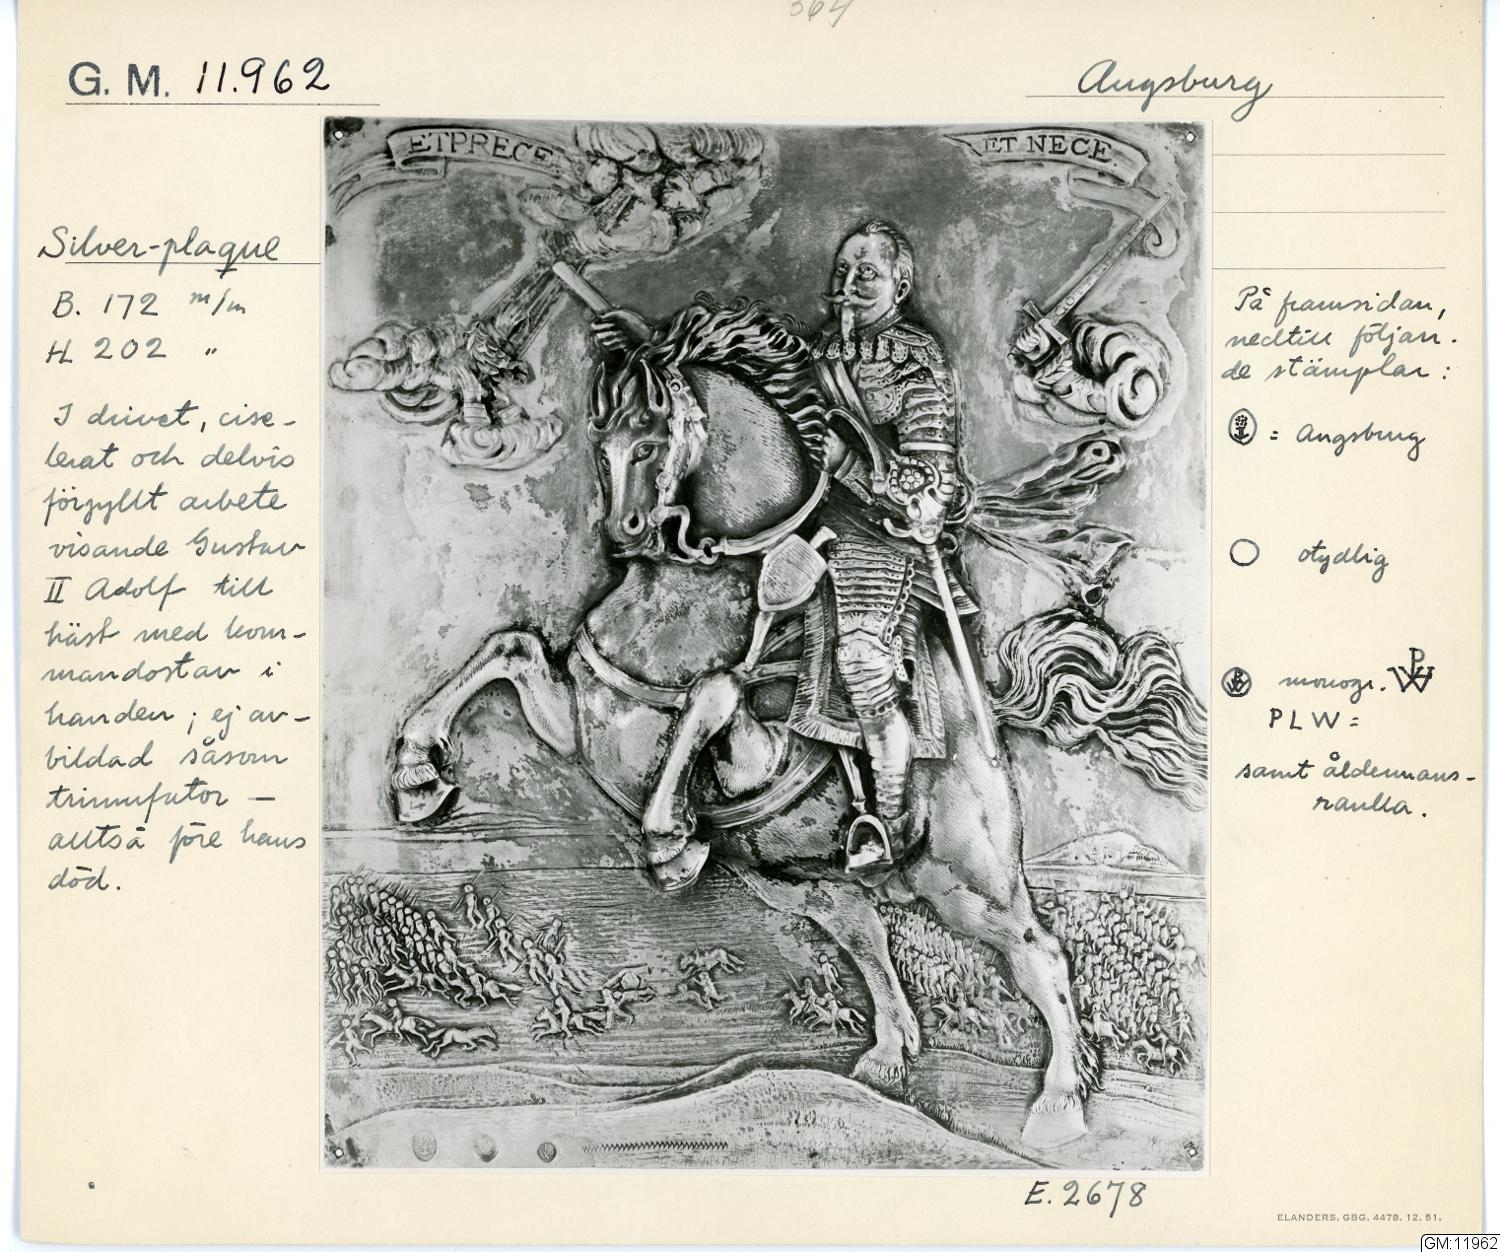 364
G. M. 11.962
Augsburg
Silver-plaque
B. 172 m/m
H 202 "
I drivet, cise-
lerat och delvis
förgyllt arbete
visande Gustav
II Adolf till
häst med kom-
mandostav i
handen; ej av-
bildad såsom
triumfator —
alltså före hans
död.
ET PRECE
ET NECE
På framsidan,
nedtill följan-
de stämplar:
= Augsburg
otydlig
monogr. PW
PLW =
samt åldermans-
ranka.
E. 2678
ELANDERS. GBG. 4478. 12. 51.
GM:11962